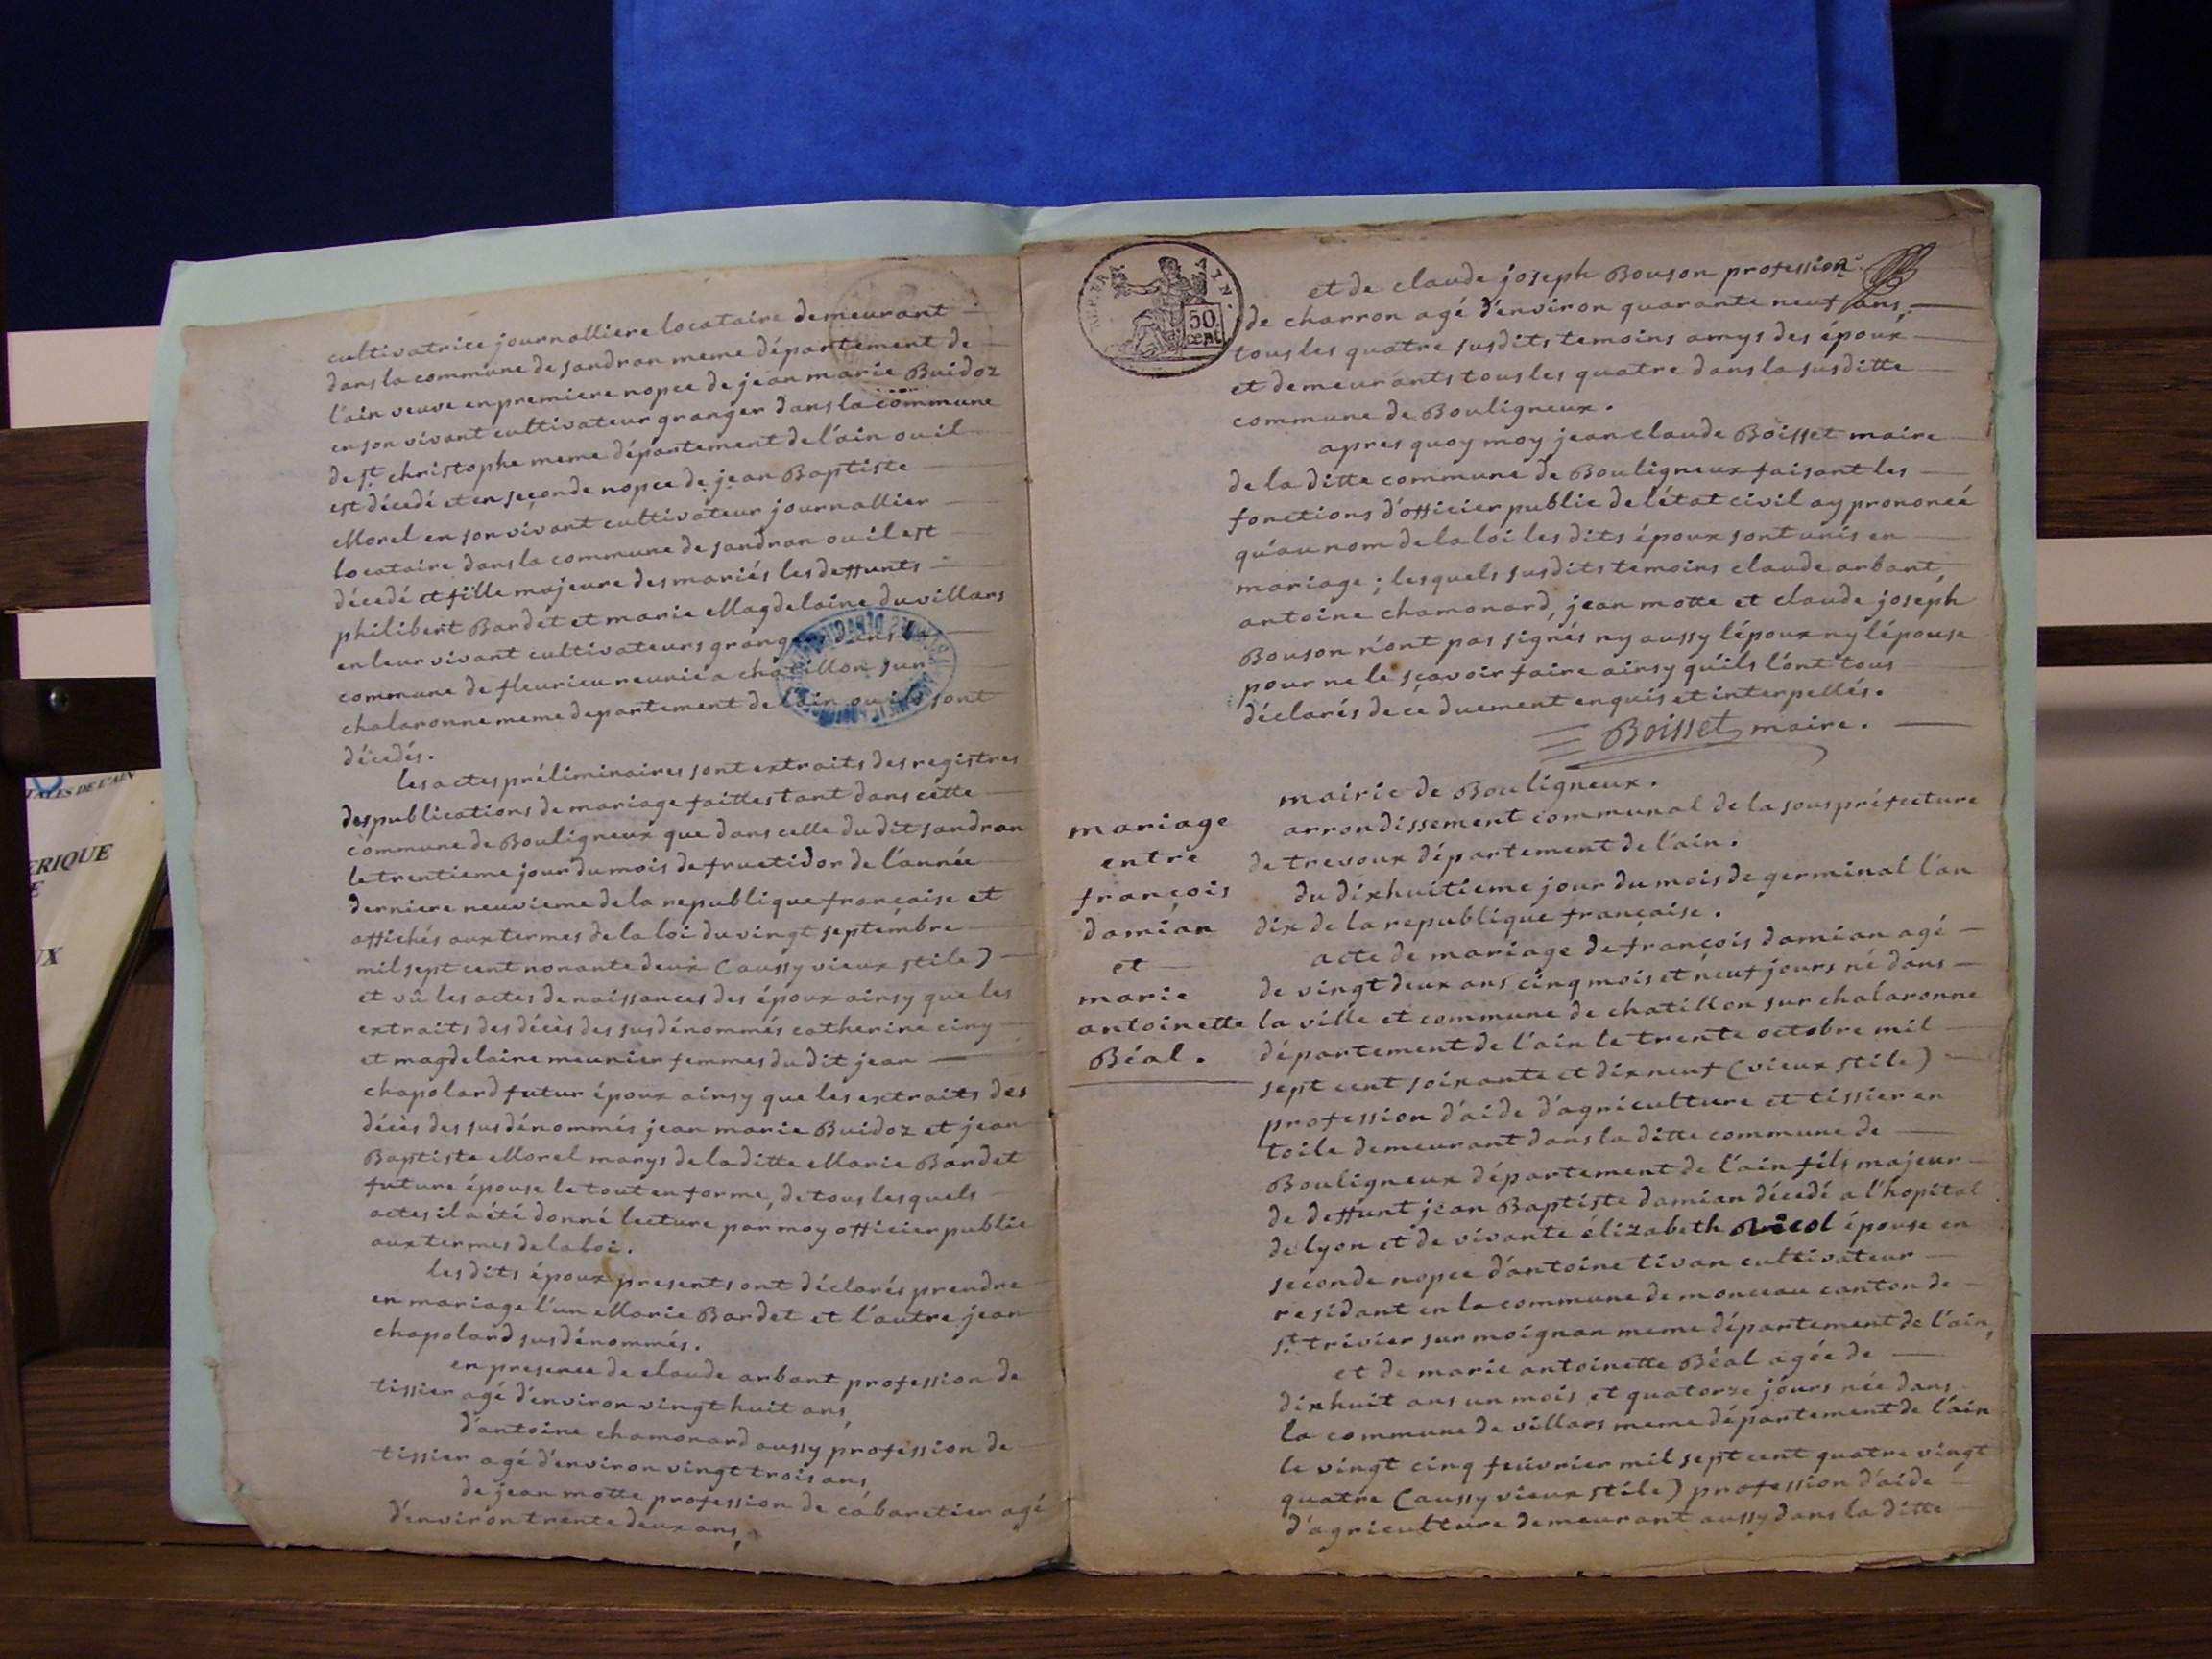 cultivatrice journalliere locataire demeurant
dans la commune de sandran meme département de
l'ain veuve en premiere nopce de jean marie Buidoz
en son vivant cultivateur granger dans la commune
de st. christophe meme département de l'ain ou il
est décedé et en seconde nopce de jean Baptiste
Morel en son vivant cultivateur journallier
locataire dans la commune de sandran ou il est
décedé et fille majeure des mariés les deffunts
philibert Bardet et marie Magdelaine duvillars
en leur vivant cultivateurs grangers dans la
commune de fleurieu reunie a chatillon sur
chalaronne meme departement de l'ain ou ils sont
décedés.
les actes préliminaires sont extraits des registres
des publications de mariage faittes tant dans cette
commune de Bouligneux que dans celle du dit sandran
le trentieme jour du mois de fructidor de l'année
derniere neuvieme de la republique française et
affichés aux termes de la loi du vingt septembre
mil sept cent nonante deux (aussy vieux stile)
et vû les actes de naissances des époux ainsy que les
extraits des décès des susdénommés catherine ciny
et magdelaine meunier femmes du dit jean
chapoland futur époux ainsy que les extraits des
décès des susdénommés jean marie Buidoz et jean
Baptiste Morel marys de la ditte Marie Bardet
future épouse le tout en forme, de tous lesquels
actes il a été donné lecture par moy officier public
aux termes de la loi.
les dits époux presents ont déclarés prendre
en mariage l'un Marie Bardet et l'autre jean
chapoland susdénommés.
en presence de claude arbant profession de
tissier agé d'environ vingt huit ans,
d'antoine chamonard aussy profession de
tissier agé d'environ vingt trois ans,
de jean motte profession de cabaretier agé
d'environ trente deux ans,
REP. FRA
50
cent.
et de claude joseph Bouson profession
de charron agé d'environ quarante neuf ans,
tous les quatre susdits temoins amys des époux
et demeurants tous les quatre dans la susditte
commune de Bouligneux.
apres quoy moy jean claude Boisset maire
de la ditte commune de Bouligneux faisant les
fonctions d'officier public de l'état civil ay prononcé
qu'au nom de la loi les dits époux sont unis en
mariage; lesquels susdits temoins claude arbant,
antoine chamonard, jean motte et claude joseph
Bouson n'ont pas signés ny aussy l'époux ny l'épouse
pour ne le sçavoir faire ainsy qu'ils l'ont tous
déclarés de ce duement enquis et interpellés.
Boisset maire.
mairie de Bouligneux.
arrondissement communal de la souspréfecture
de trevoux département de l'ain.
du dixhuitieme jour du mois de germinal l'an
dix de la republique française.
mariage
entre
françois
damian
et
marie
antoinette
Béal.
acte de mariage de françois damian agé
de vingt deux ans cinq mois et neuf jours né dans
la ville et commune de chatillon sur chalaronne
département de l'ain le trente octobre mil
sept cent soixante et dix neuf (vieux stile)
profession d'aide d'agriculture et tissier en
toile demeurant dans la ditte commune de
Bouligneux département de l'ain fils majeur
de deffunt jean Baptiste damian décedé a l'hopital
de lyon et de vivante élizabeth épouse en
seconde nopce d'antoine tivan cultivateur
residant en la commune de monceau canton de
st. trivier sur moignan meme département de l'ain,
et de marie antoinette Béal agée de
dixhuit ans un mois et quatorze jours née dans
la commune de villars meme département de l'ain
le vingt cinq feuvrier mil sept cent quatre vingt
quatre (aussy vieux stile) profession d'aide
d'agriculture demeurant aussy dans la ditte
TALES DE L'AIN
ERIQUE
E
UX